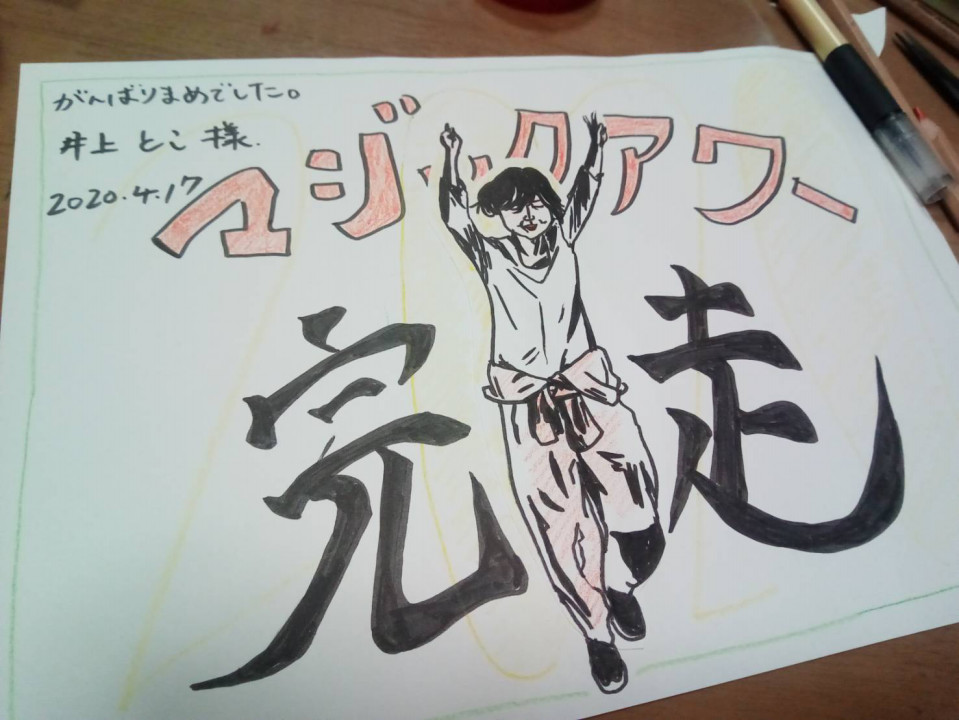 がんばりまめでした。
井上 とこ 様.
2020.4.17
マジックアワー
完走